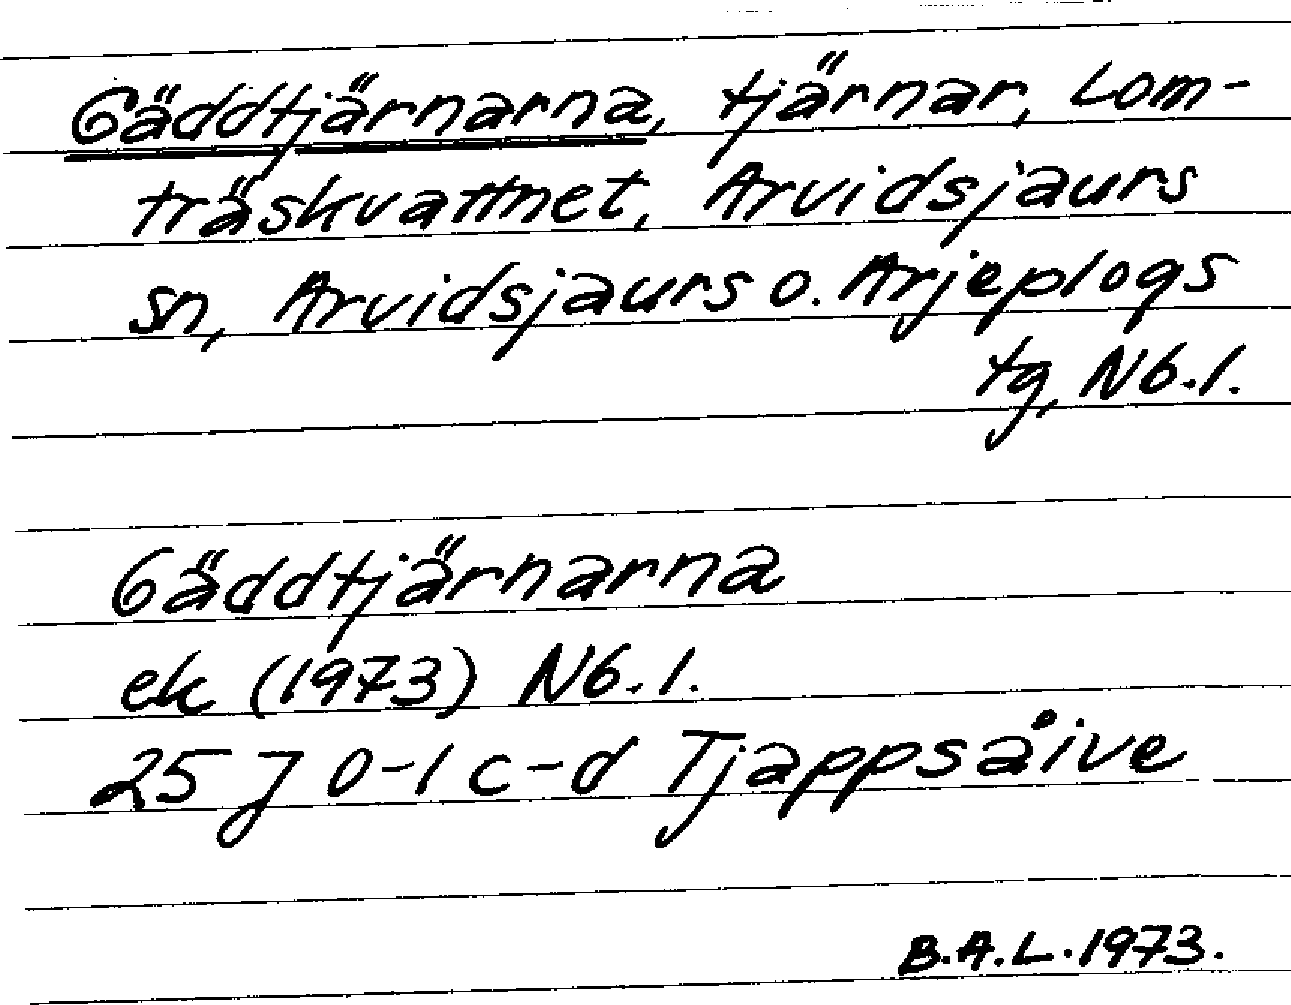 Gäddtjärnarna, tjärnar, Lom-
träskvattnet, Arvidsjaurs
sn, Arvidsjaurs o. Arjeplogs
tg, Nb.l.
Gäddtjärnarna
ek (1973) Nb.l.
25 J 0-1 c-d Tjappsåive
B.A.L. 1973.